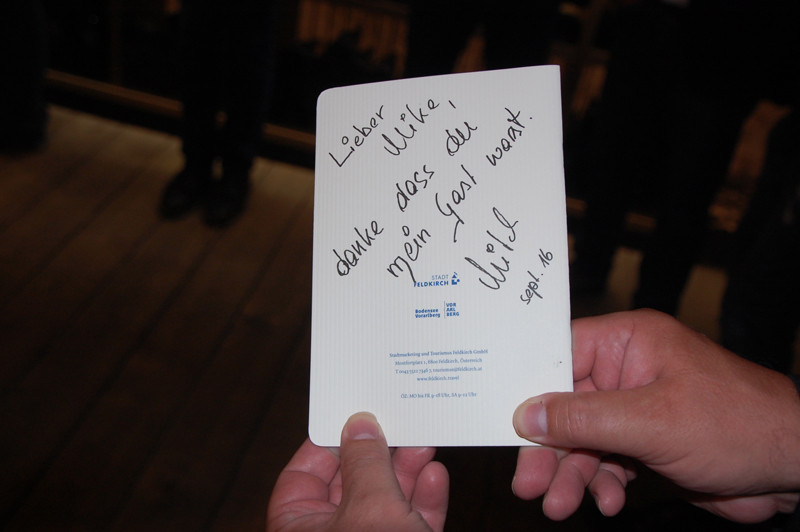 Lieber Mike,
danke dass du
mein Gast warst.
sept. 16
STADT
FELDKIRCH
Bodensee
Vorarlberg
VOR
ARL
BERG
Stadtmarketing und Tourismus Feldkirch GmbH
www.feldkirch.travel